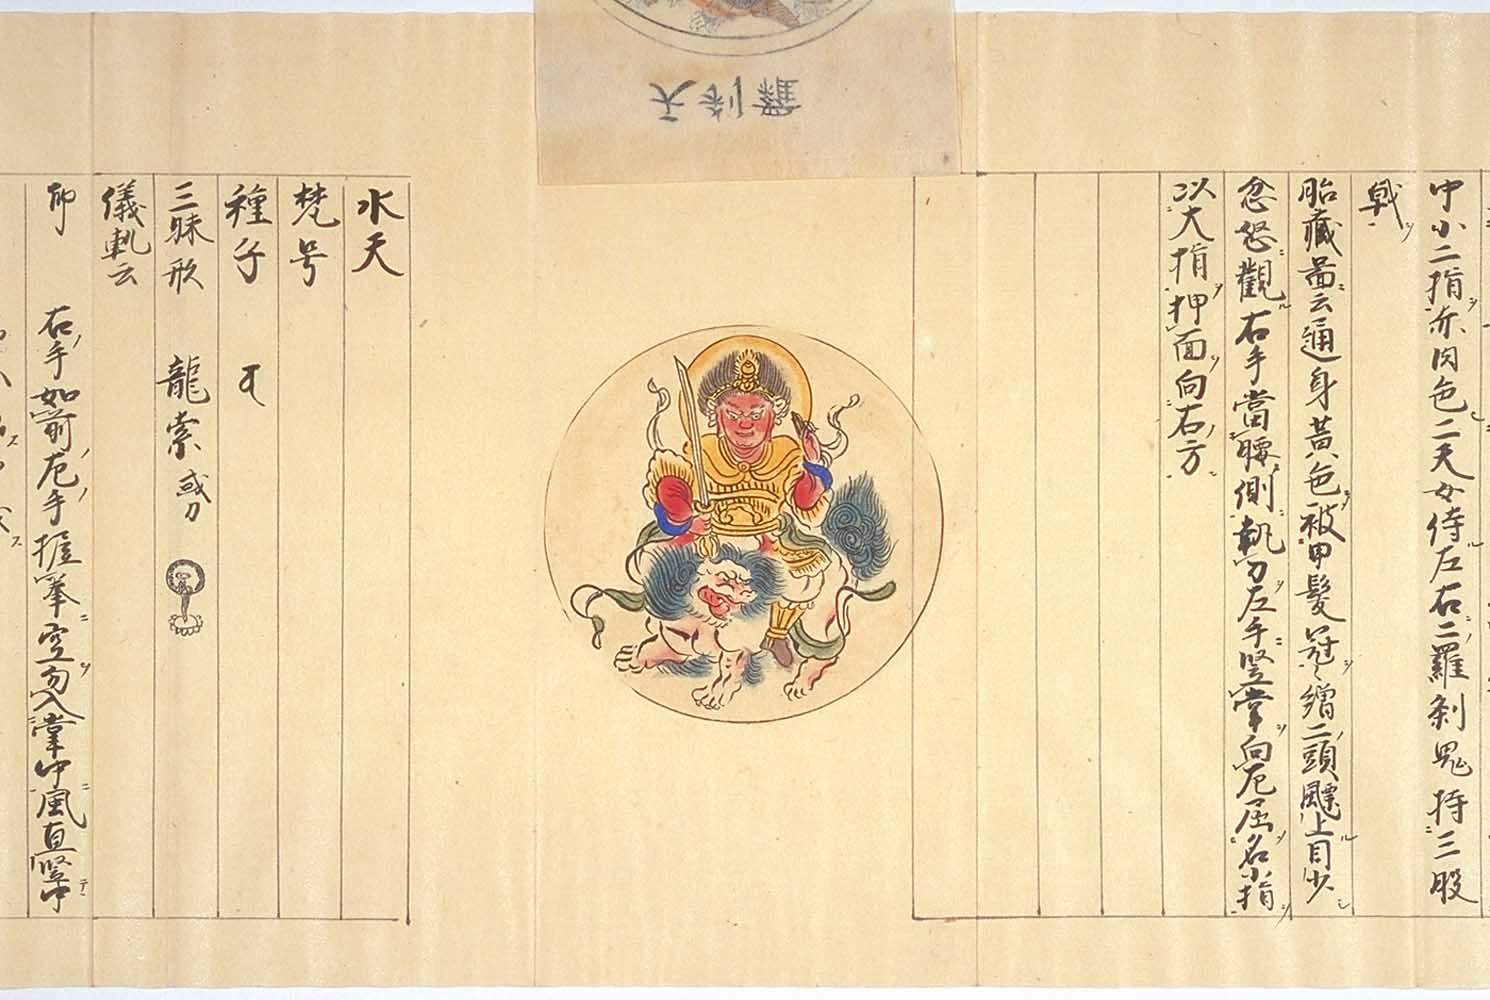 羅刹天
中小二指亦肉色二天女侍左右二羅刹鬼持三股
戟
胎藏啚云通身黄色被甲髮冠繒二頭飄上目少
忿怒觀右手當腰側執刀左手竪掌向左屈名小指
以大指押面向右方
水天
梵号
種子
三昧形 龍索 或刀
儀軌云
印 右手如前左手握拳空勿入掌中風直竪中